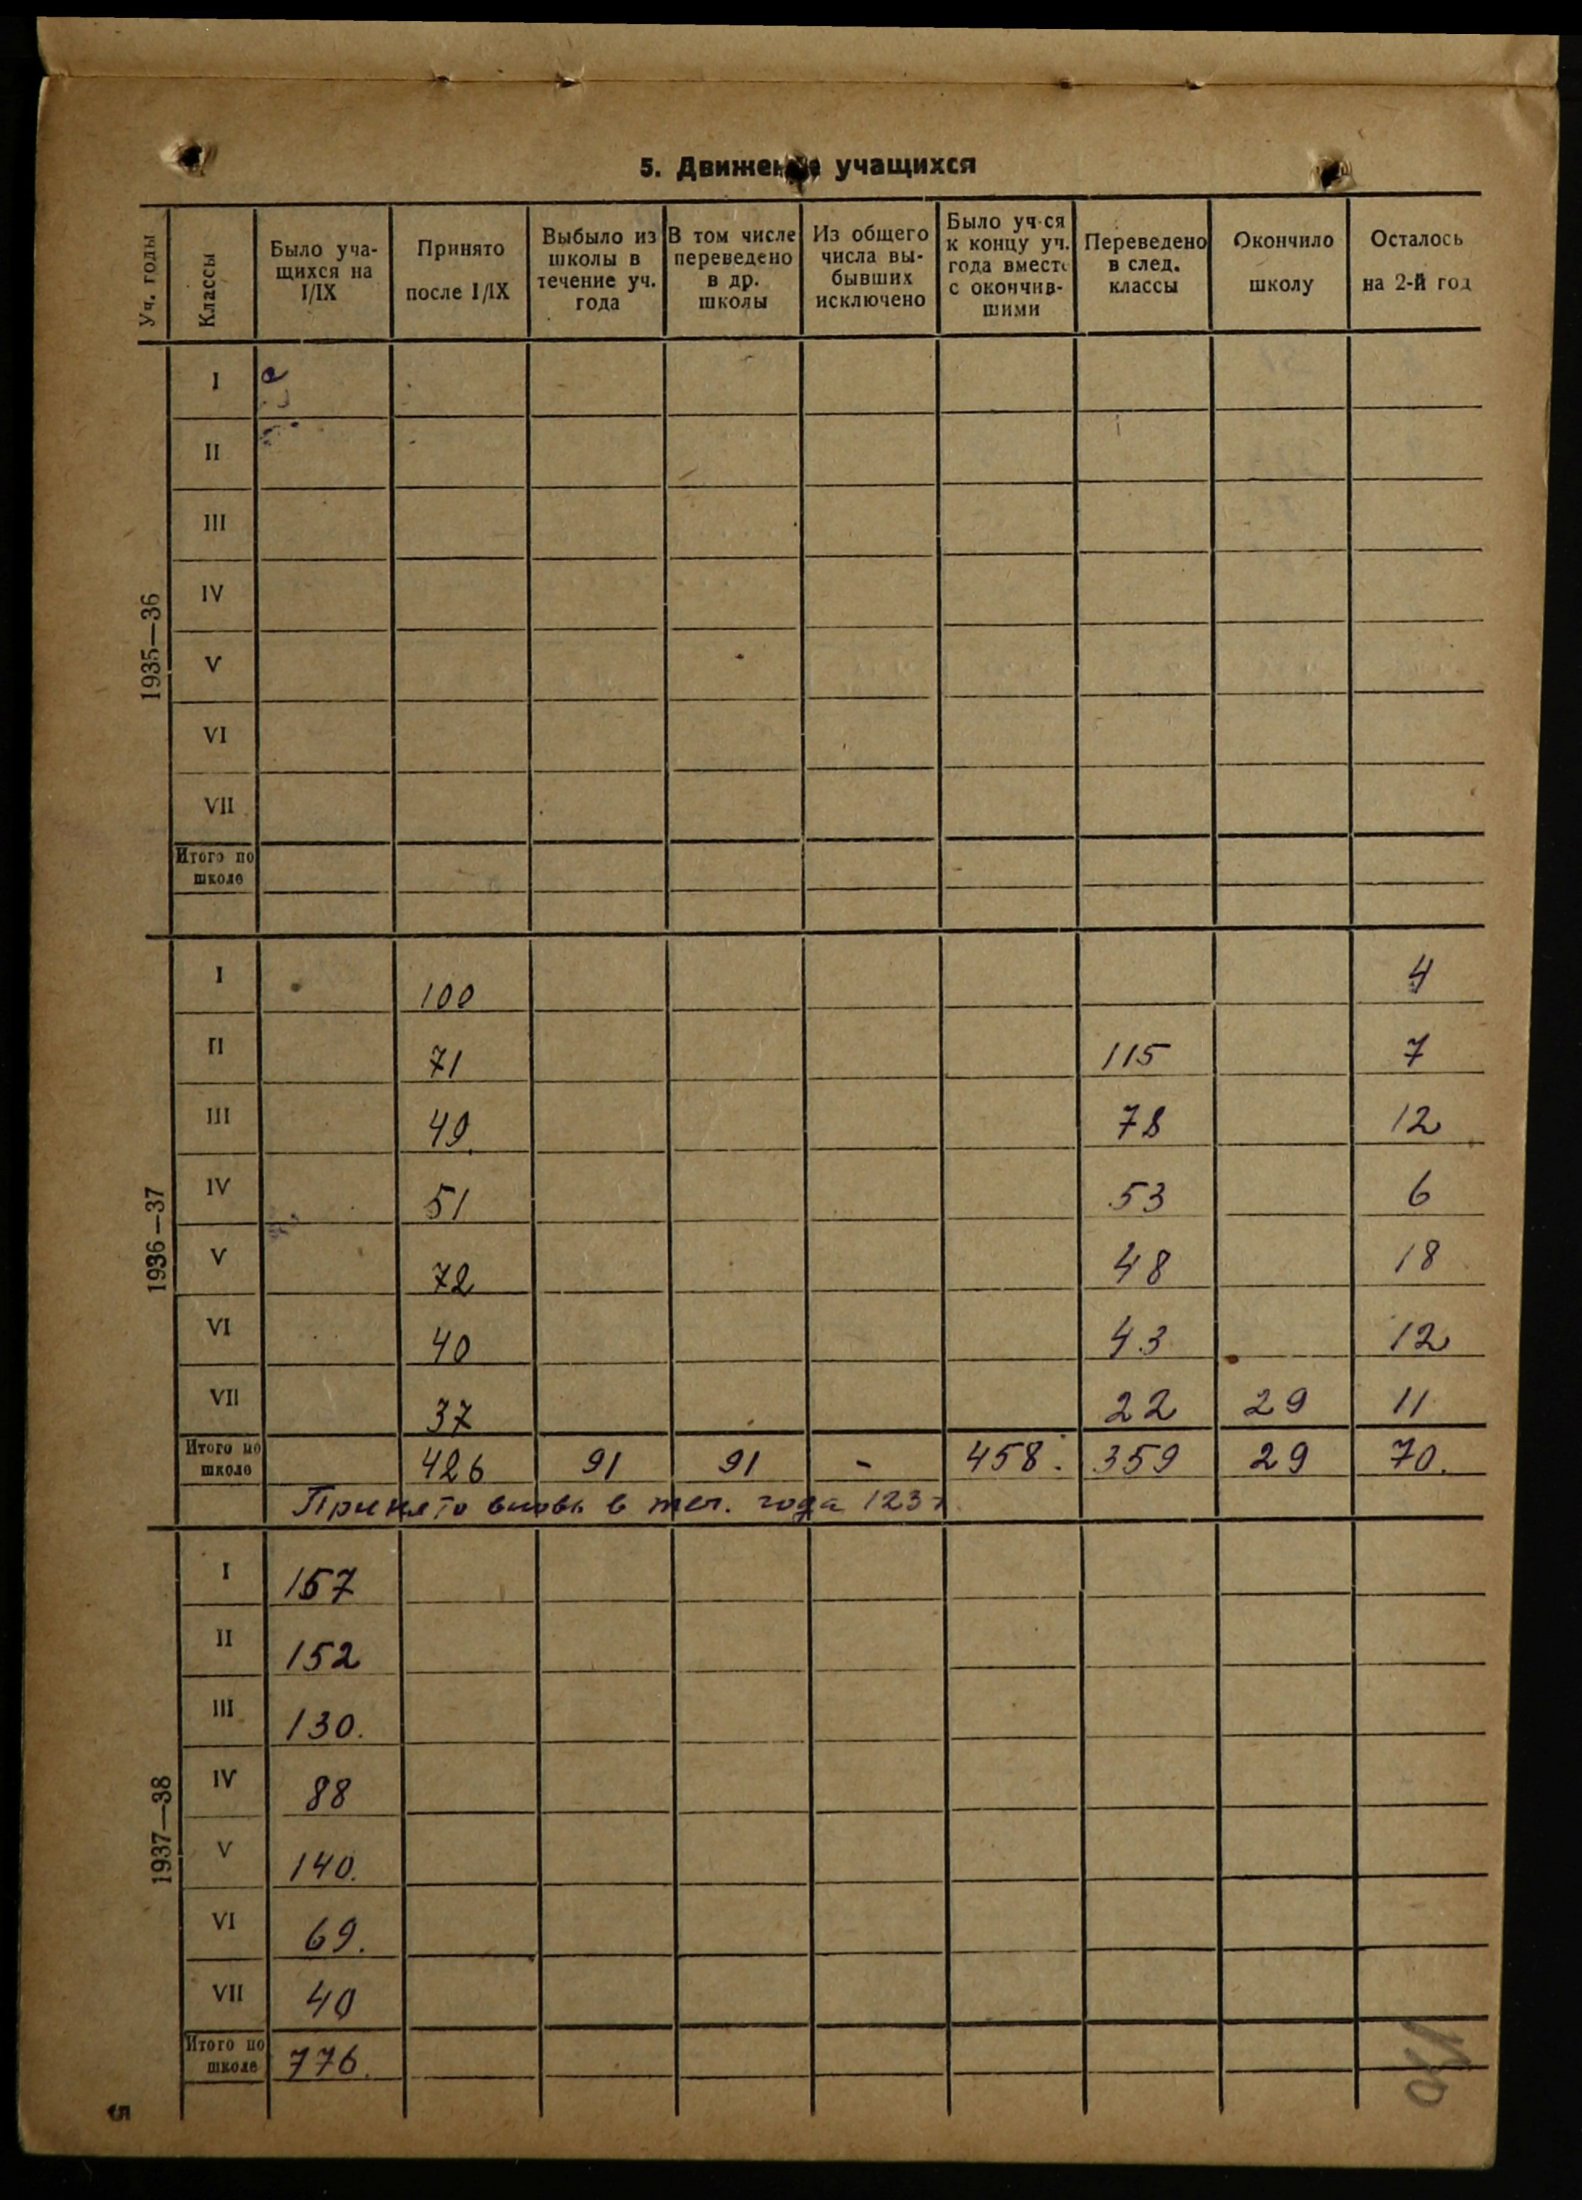 5. Движение учащихся
Уч. годы | Классы | Было уча-щихся на I/IX | Принято после I/IX | Выбыло из школы в течение уч. года | В том числе переведено в др. школы | Из общего числа вы-бывших исключено | Было уч-ся к концу уч. года вместе с окончив-шими | Переведено в след. классы | Окончило школу | Осталось на 2-й год
1935—36
I
II
III
IV
V
VI
VII
Итого по школе
1936—37
I | 100 | 4
II | 71 | 115 | 7
III | 49. | 78 | 12
IV | 51 | 53 | 6
V | 72 | 48 | 18
VI | 40 | 43 | 12
VII | 37 | 22 | 29 | 11
Итого по школе | 426 | 91 | 91 | - | 458. | 359 | 29 | 70.
Принято вновь в теч. года 123
1937—38
I | 157
II | 152
III | 130.
IV | 88
V | 140.
VI | 69.
VII | 40
Итого по школе | 776.
5